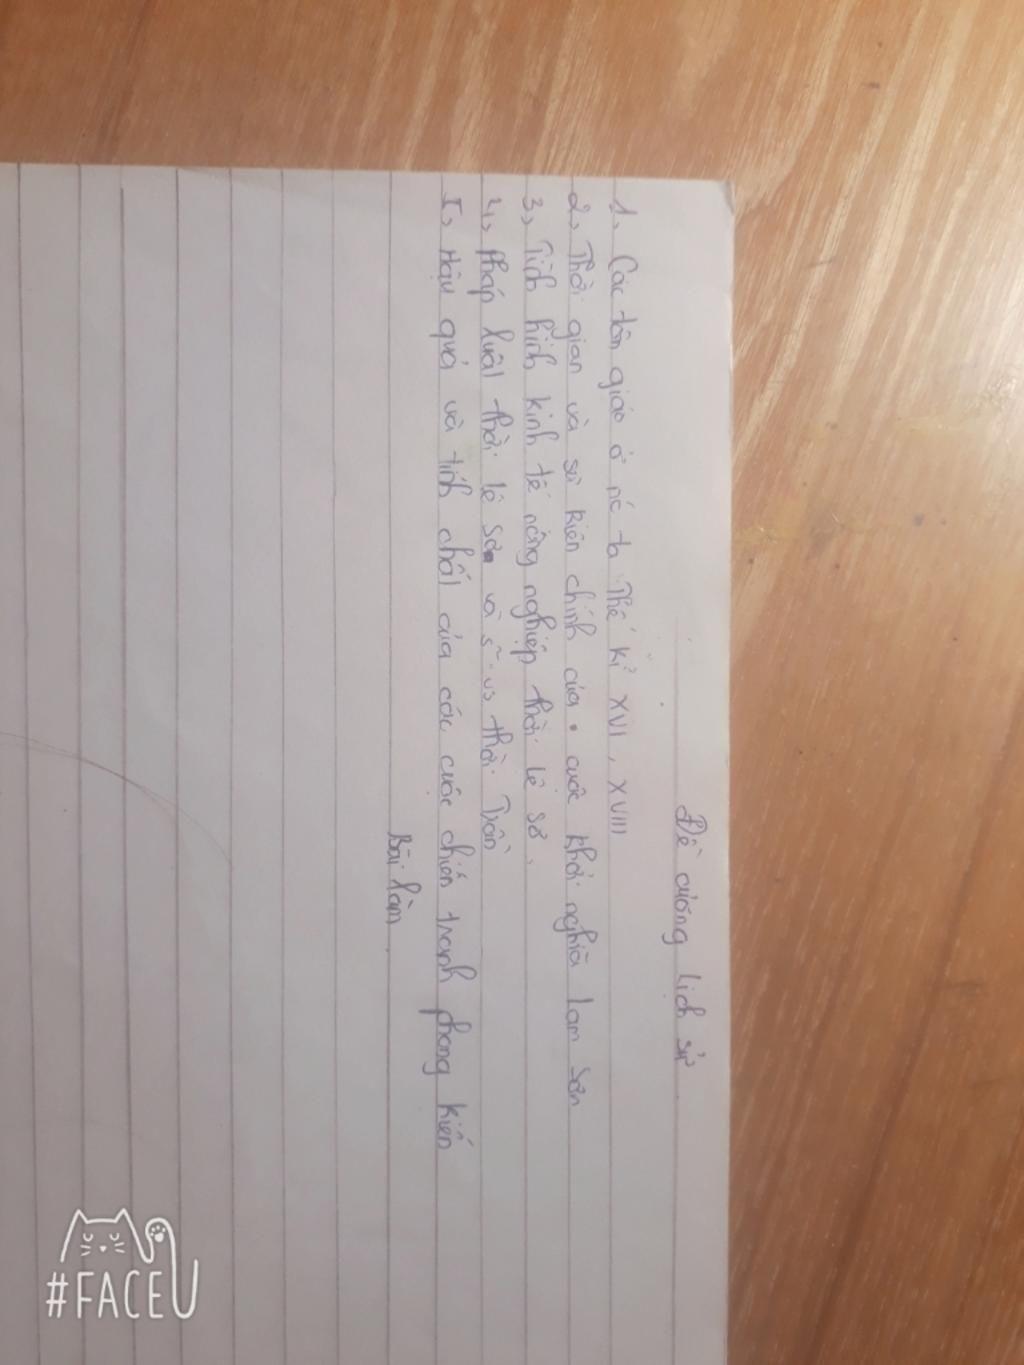 Đề cương lịch sử
1, Các tôn giáo ở nc ta Thế kỉ XVI, XVIII
2, Thời gian và sự kiện chính của cuộc khởi nghĩa lam sơn
3, Tình hình kinh tế nông nghiệp thời lê sơ.
4, Pháp luật thời lê sơ và s² vs thời Trần
5, Hậu quả và tính chất của các cuộc chiến tranh phong kiến
Bài làm.
#FACEU